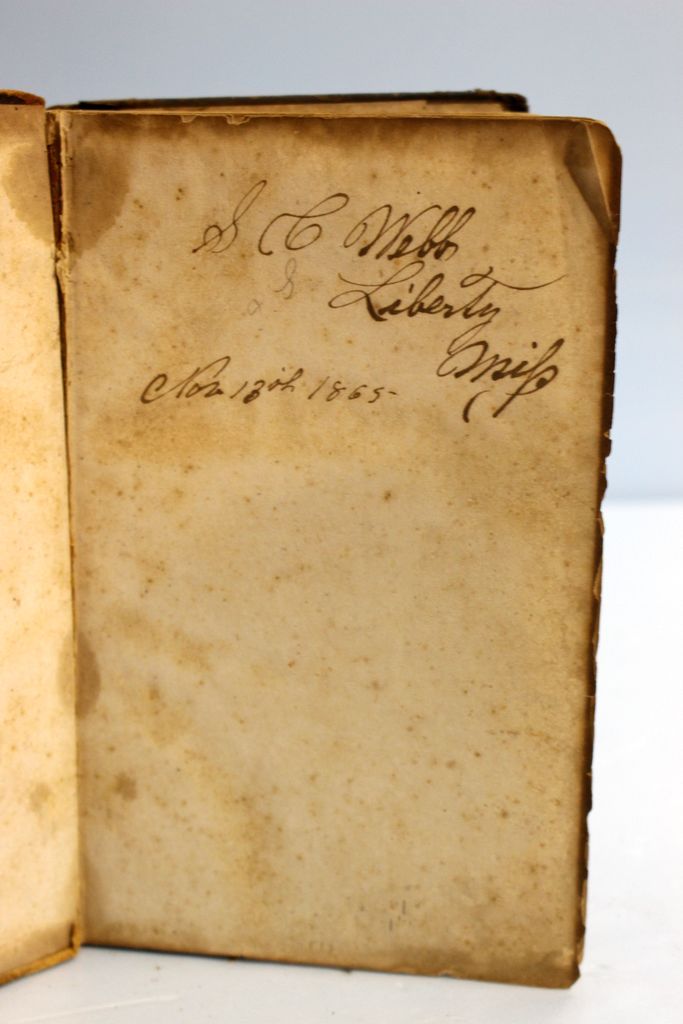 S C Webb
Liberty
Miss
Nov 13th 1865